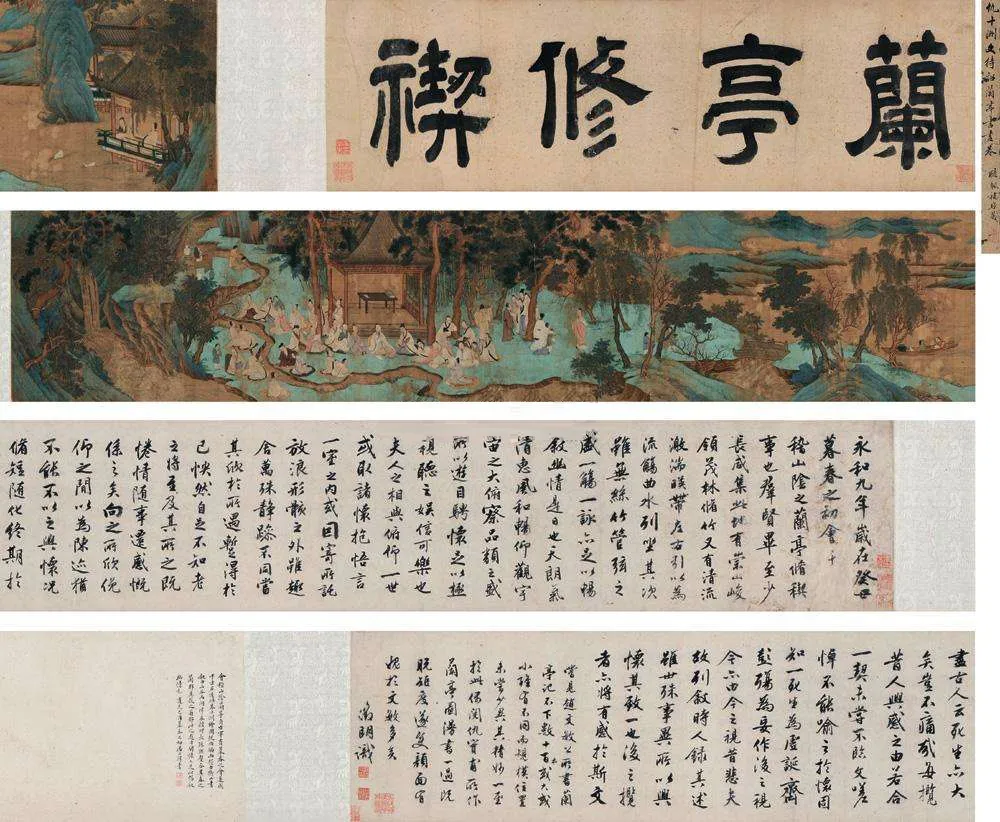 仇十洲文待詔蘭亭書畫卷
蘭亭修禊
永和九年歲在癸丑
暮春之初會于
稽山陰之蘭亭脩稧
事也羣賢畢至少
長咸集此地有崇山峻
領茂林脩竹又有清流
激湍暎帶左右引以為
流觴曲水列坐其次
雖無絲竹管弦之
盛一觴一詠亦足以暢
敘幽情是日也天朗氣
清惠風和暢仰觀宇
宙之大俯察品類之盛
所以遊目騁懷足以極
視聽之娛信可樂也
夫人之相與俯仰一世
或取諸懷抱悟言
一室之內或因寄所託
放浪形骸之外雖趣
舍萬殊靜躁不同當
其欣於所遇暫得於
己怏然自足不知老
之將至及其所之既
惓情隨事遷感慨
係之矣向之所欣俛
仰之間以為陳迹猶
不能不以之興懷況
脩短隨化終期於
盡古人云死生亦大
矣豈不痛哉每攬
昔人興感之由若合
一契未嘗不臨文嗟
悼不能喻之於懷固
知一死生為虛誕齊
彭殤為妄作後之視
今亦由今之視昔悲夫
故列敘時人錄其述
雖世殊事異所以興
懷其致一也後之攬
者亦將有感於斯文
嘗見趙文敏公所書蘭
亭記不下數十百或大或
小雖皆不同而規模位置
未嘗少異其精妙一至
於此偶閱仇實甫所作
蘭亭圖漫書一過既
愧於文敏多矣
徵明識